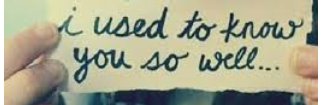 i used to know
you so well...